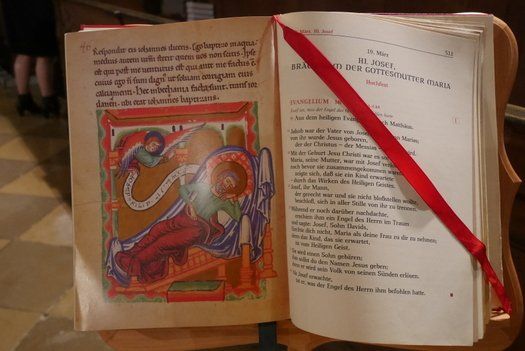 Respondit eis iohannes dicens. Ego baptizo in aqua.
medius autem vr̄m stetit quem uos non scitis. Ipse
est qui post me uenturus est qui ante me factus ē
cuius ego n̄ sum dign' ut soluam corrigiam eius
calciamenti. Hec in bethania facta sunt trans ior
danen. ubi erat iohannes baptizans.
19. März, Hl. Josef
533
19. März
HL. JOSEF,
BRÄUTIGAM DER GOTTESMUTTER MARIA
Hochfest
EVANGELIUM
+ Aus dem heiligen Evangelium nach Matthäus.
Jakob war der Vater von Josef, dem Mann Marias;
von ihr wurde Jesus geboren,
der der Christus – der Messias
Mit der Geburt Jesu Christi war es so
Maria, seine Mutter, war mit Josef
noch bevor sie zusammengekommen waren,
zeigte sich, daß sie ein Kind erwartete
durch das Wirken des Heiligen Geistes.
Josef, ihr Mann,
der gerecht war und sie nicht bloßstellen wollte,
beschloß, sich in aller Stille von ihr zu trennen.
Während er noch darüber nachdachte,
erschien ihm ein Engel des Herrn im Traum
und sagte: Josef, Sohn Davids,
fürchte dich nicht, Maria als deine Frau zu dir zu nehmen;
denn das Kind, das sie erwartet,
ist vom Heiligen Geist.
Sie wird einen Sohn gebären;
ihm sollst du den Namen Jesus geben;
denn er wird sein Volk von seinen Sünden erlösen.
Als Josef erwachte,
tat er, was der Engel des Herrn ihm befohlen hatte.